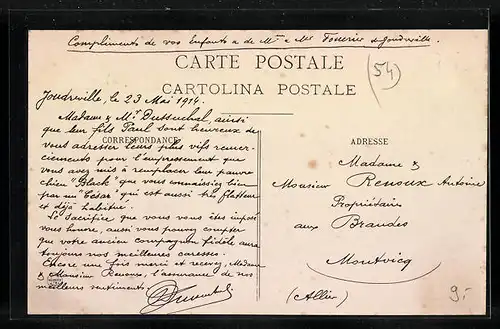 Compliments de vos Enfants & de Mr & Mme Fourier de Joudreville.
CARTE POSTALE
CARTOLINA POSTALE
(54)
Joudreville, le 23 Mai 1914.
Madame & Mr Dussuchal, ainsi
que leur fils Paul sont heureux de
CORRESPONDANCE
vous adresser leurs plus vifs remer-
ciements pour l'empressement que
vous avez mis à remplacer leur pauvre
chien "Black" que vous connaissiez bien
par un "César" qui est aussi très flatteur
et déjà habitué.
Le sacrifice que vous vous êtes imposé
vous honore, aussi vous pouvez compter
que votre ancien compagnon fidèle aura
toujours nos meilleures caresses.
Encore une fois merci et recevez, Madame
& Monsieur Renoux, l'assurance de nos
meilleurs sentiments.
ADRESSE
Madame &
Monsieur Renoux Antoine
Propriétaire
aux Brandes
Montvicq
(Allier)
9.-